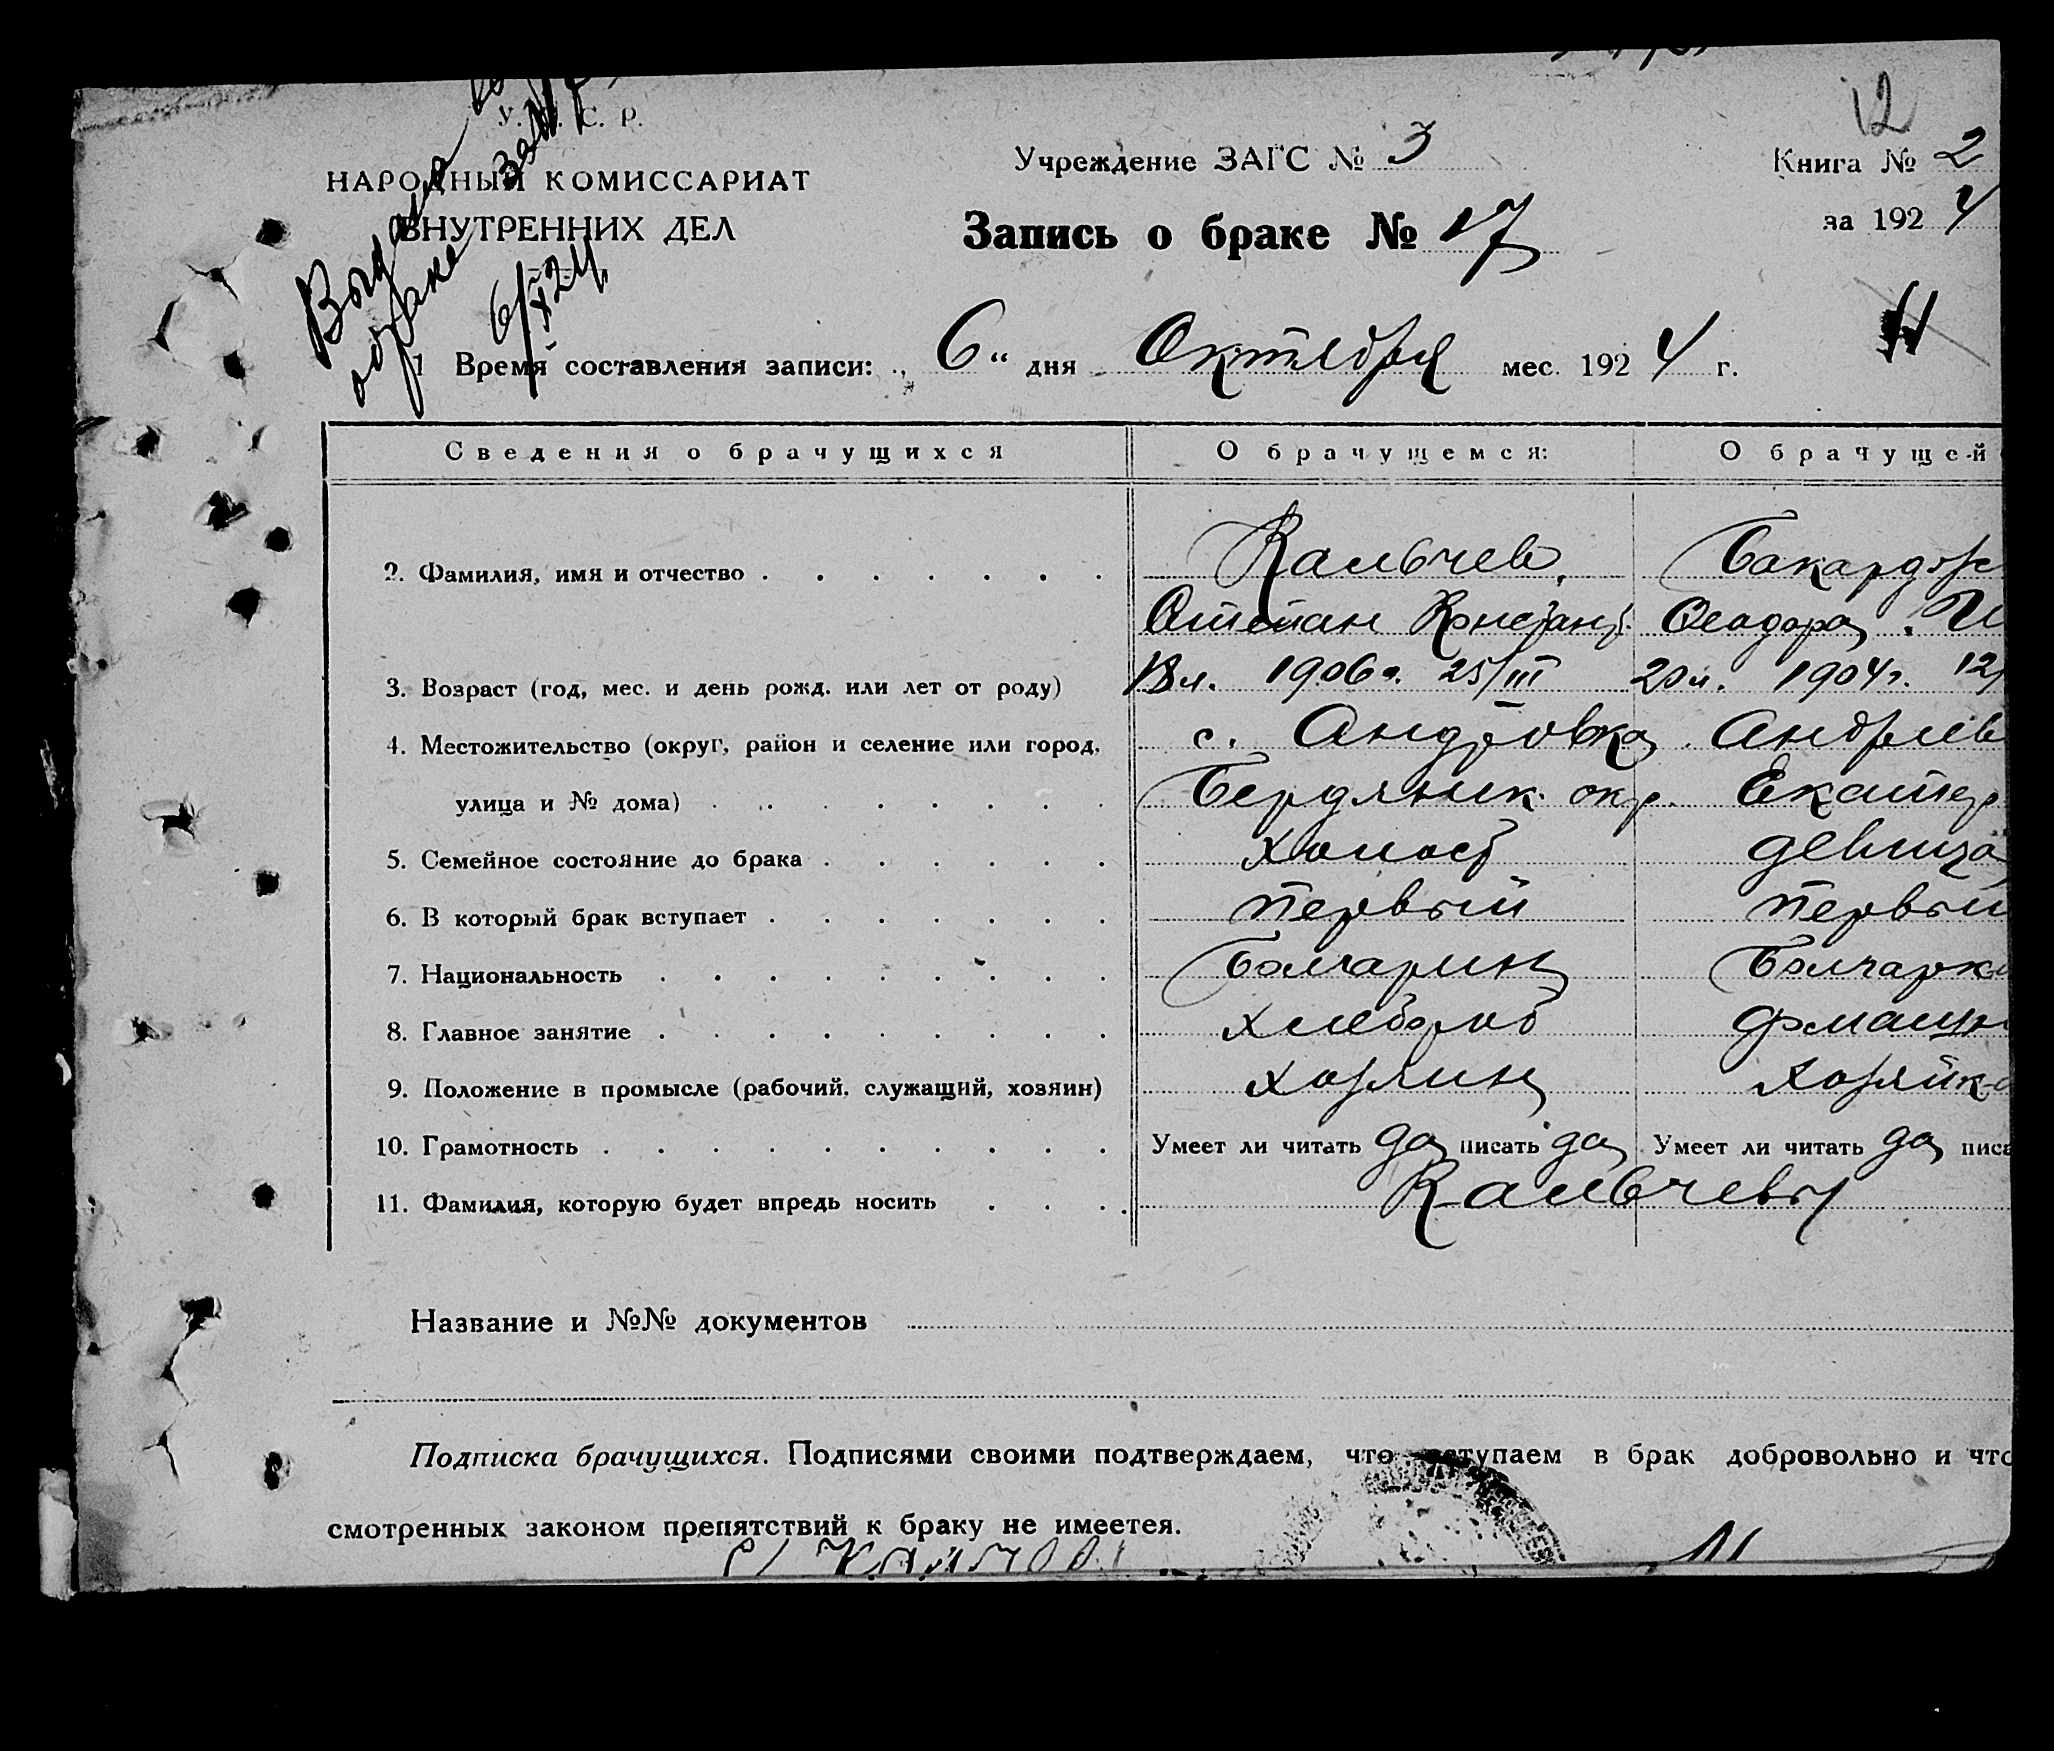 12
У. С. С. Р.
НАРОДНЫЙ КОМИССАРИАТ
ВНУТРЕННИХ ДЕЛ
Выдана
о браке
6/X 24
Учреждение ЗАГС № 3
Книга № 2
Запись о браке № 17
за 1924
1 Время составления записи: „ 6 “ дня Октября мес. 1924 г.
Сведения о брачущихся О брачущемся: О брачущей
2. Фамилия, имя и отчество Кальчев, Бакардж
Степан Констант. Феодора
3. Возраст (год, мес. и день рожд. или лет от роду) 18 л. 1906 г. 25/III 20 л. 1904 г. 12/
4. Местожительство (округ, район и селение или город, с. Андровка Андреев
улица и № дома) Бердянск. окр. Екатер
5. Семейное состояние до брака холост девица
6. В который брак вступает первый первый
7. Национальность Болгарин Болгарка
8. Главное занятие хлебороб домашн
9. Положение в промысле (рабочий, служащий, хозяин) хозяин хозяйка
10. Грамотность Умеет ли читать да писать да Умеет ли читать да писа
11. Фамилия, которую будет впредь носить Кальчевы
Название и №№ документов
Подписка брачущихся. Подписями своими подтверждаем, что вступаем в брак добровольно и что
смотренных законом препятствий к браку не имеетея.